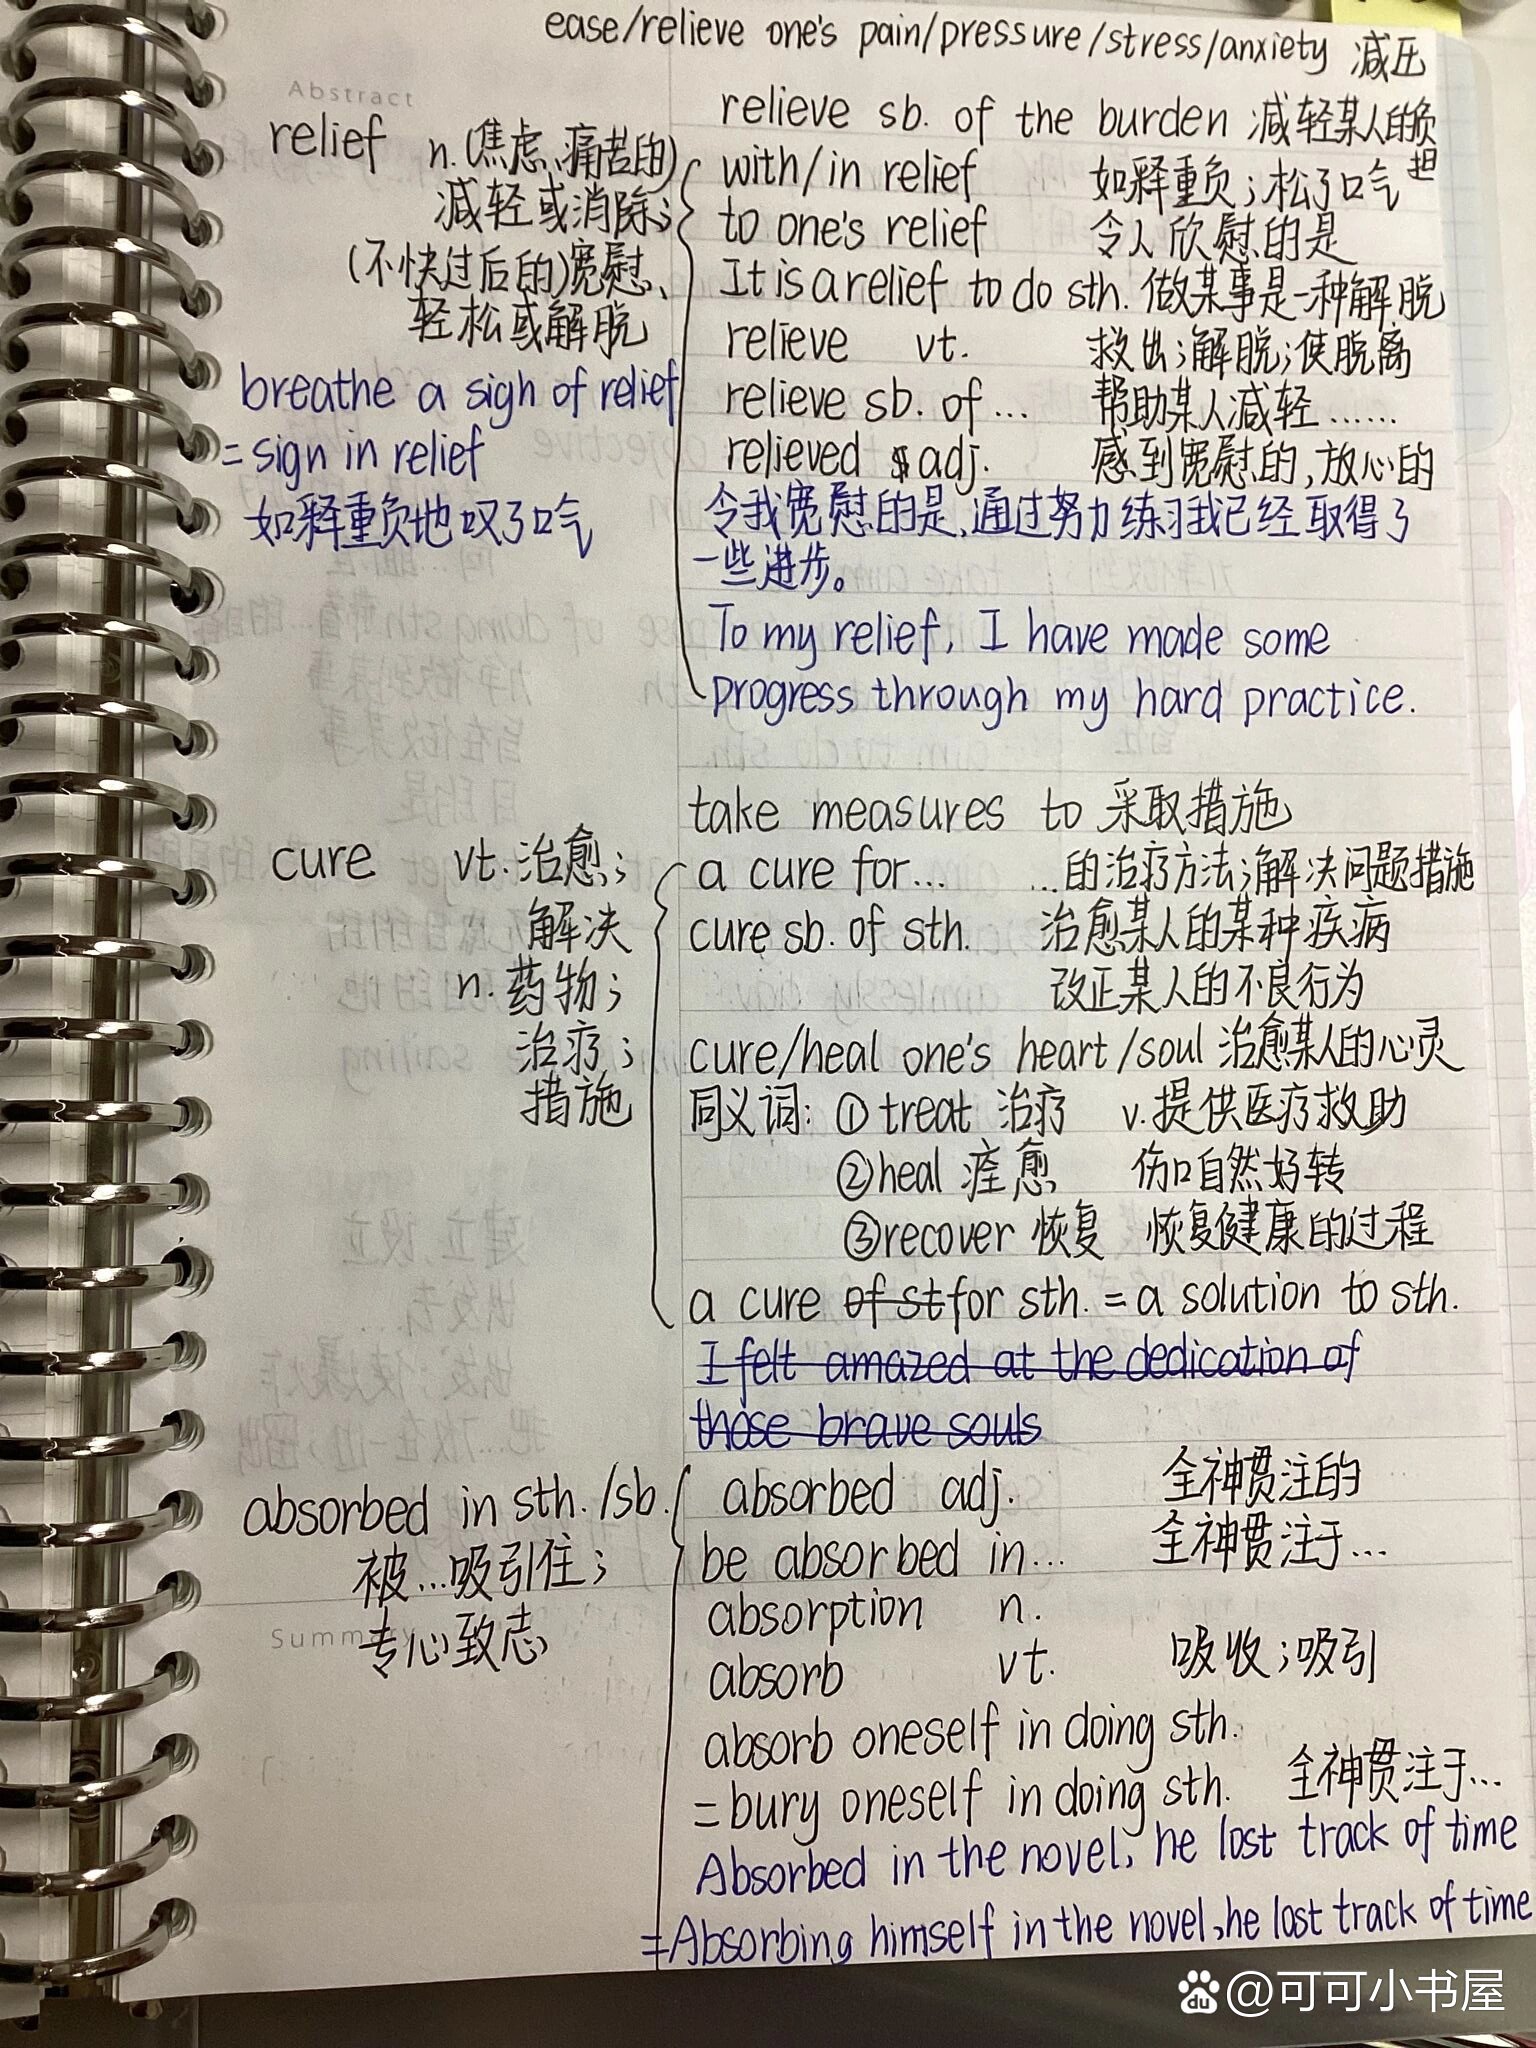 ease/relieve one's pain/pressure/stress/anxiety 减压
Abstract
relieve sb. of the burden 减轻某人的负担
relief n.(焦虑、痛苦的)
减轻或消除;
(不快过后的)宽慰、
轻松或解脱
breathe a sigh of relief
=sign in relief
如释重负地叹了口气
with/in relief 如释重负;松了口气
to one's relief 令人欣慰的是
It is a relief to do sth. 做某事是一种解脱
relieve vt. 救出;解脱;使脱离
relieve sb. of... 帮助某人减轻......
relieved adj. 感到宽慰的,放心的
令我宽慰的是,通过努力练习我已经取得了
一些进步。
To my relief, I have made some
progress through my hard practice.
take measures to 采取措施
cure vt.治愈;
解决
n.药物;
治疗;
措施
a cure for... ...的治疗方法;解决问题措施
cure sb. of sth. 治愈某人的某种疾病
改正某人的不良行为
cure/heal one's heart/soul 治愈某人的心灵
同义词: ①treat 治疗 v.提供医疗救助
②heal 痊愈 伤口自然好转
③recover 恢复 恢复健康的过程
a cure of st for sth. = a solution to sth.
I felt amazed at the dedication of
those brave souls
absorbed in sth./sb.
被...吸引住;
专心致志
Summary
absorbed adj. 全神贯注的
be absorbed in... 全神贯注于...
absorption n.
absorb vt. 吸收;吸引
absorb oneself in doing sth.
=bury oneself in doing sth. 全神贯注于...
Absorbed in the novel, he lost track of time
=Absorbing himself in the novel, he lost track of time
du @可可小书屋